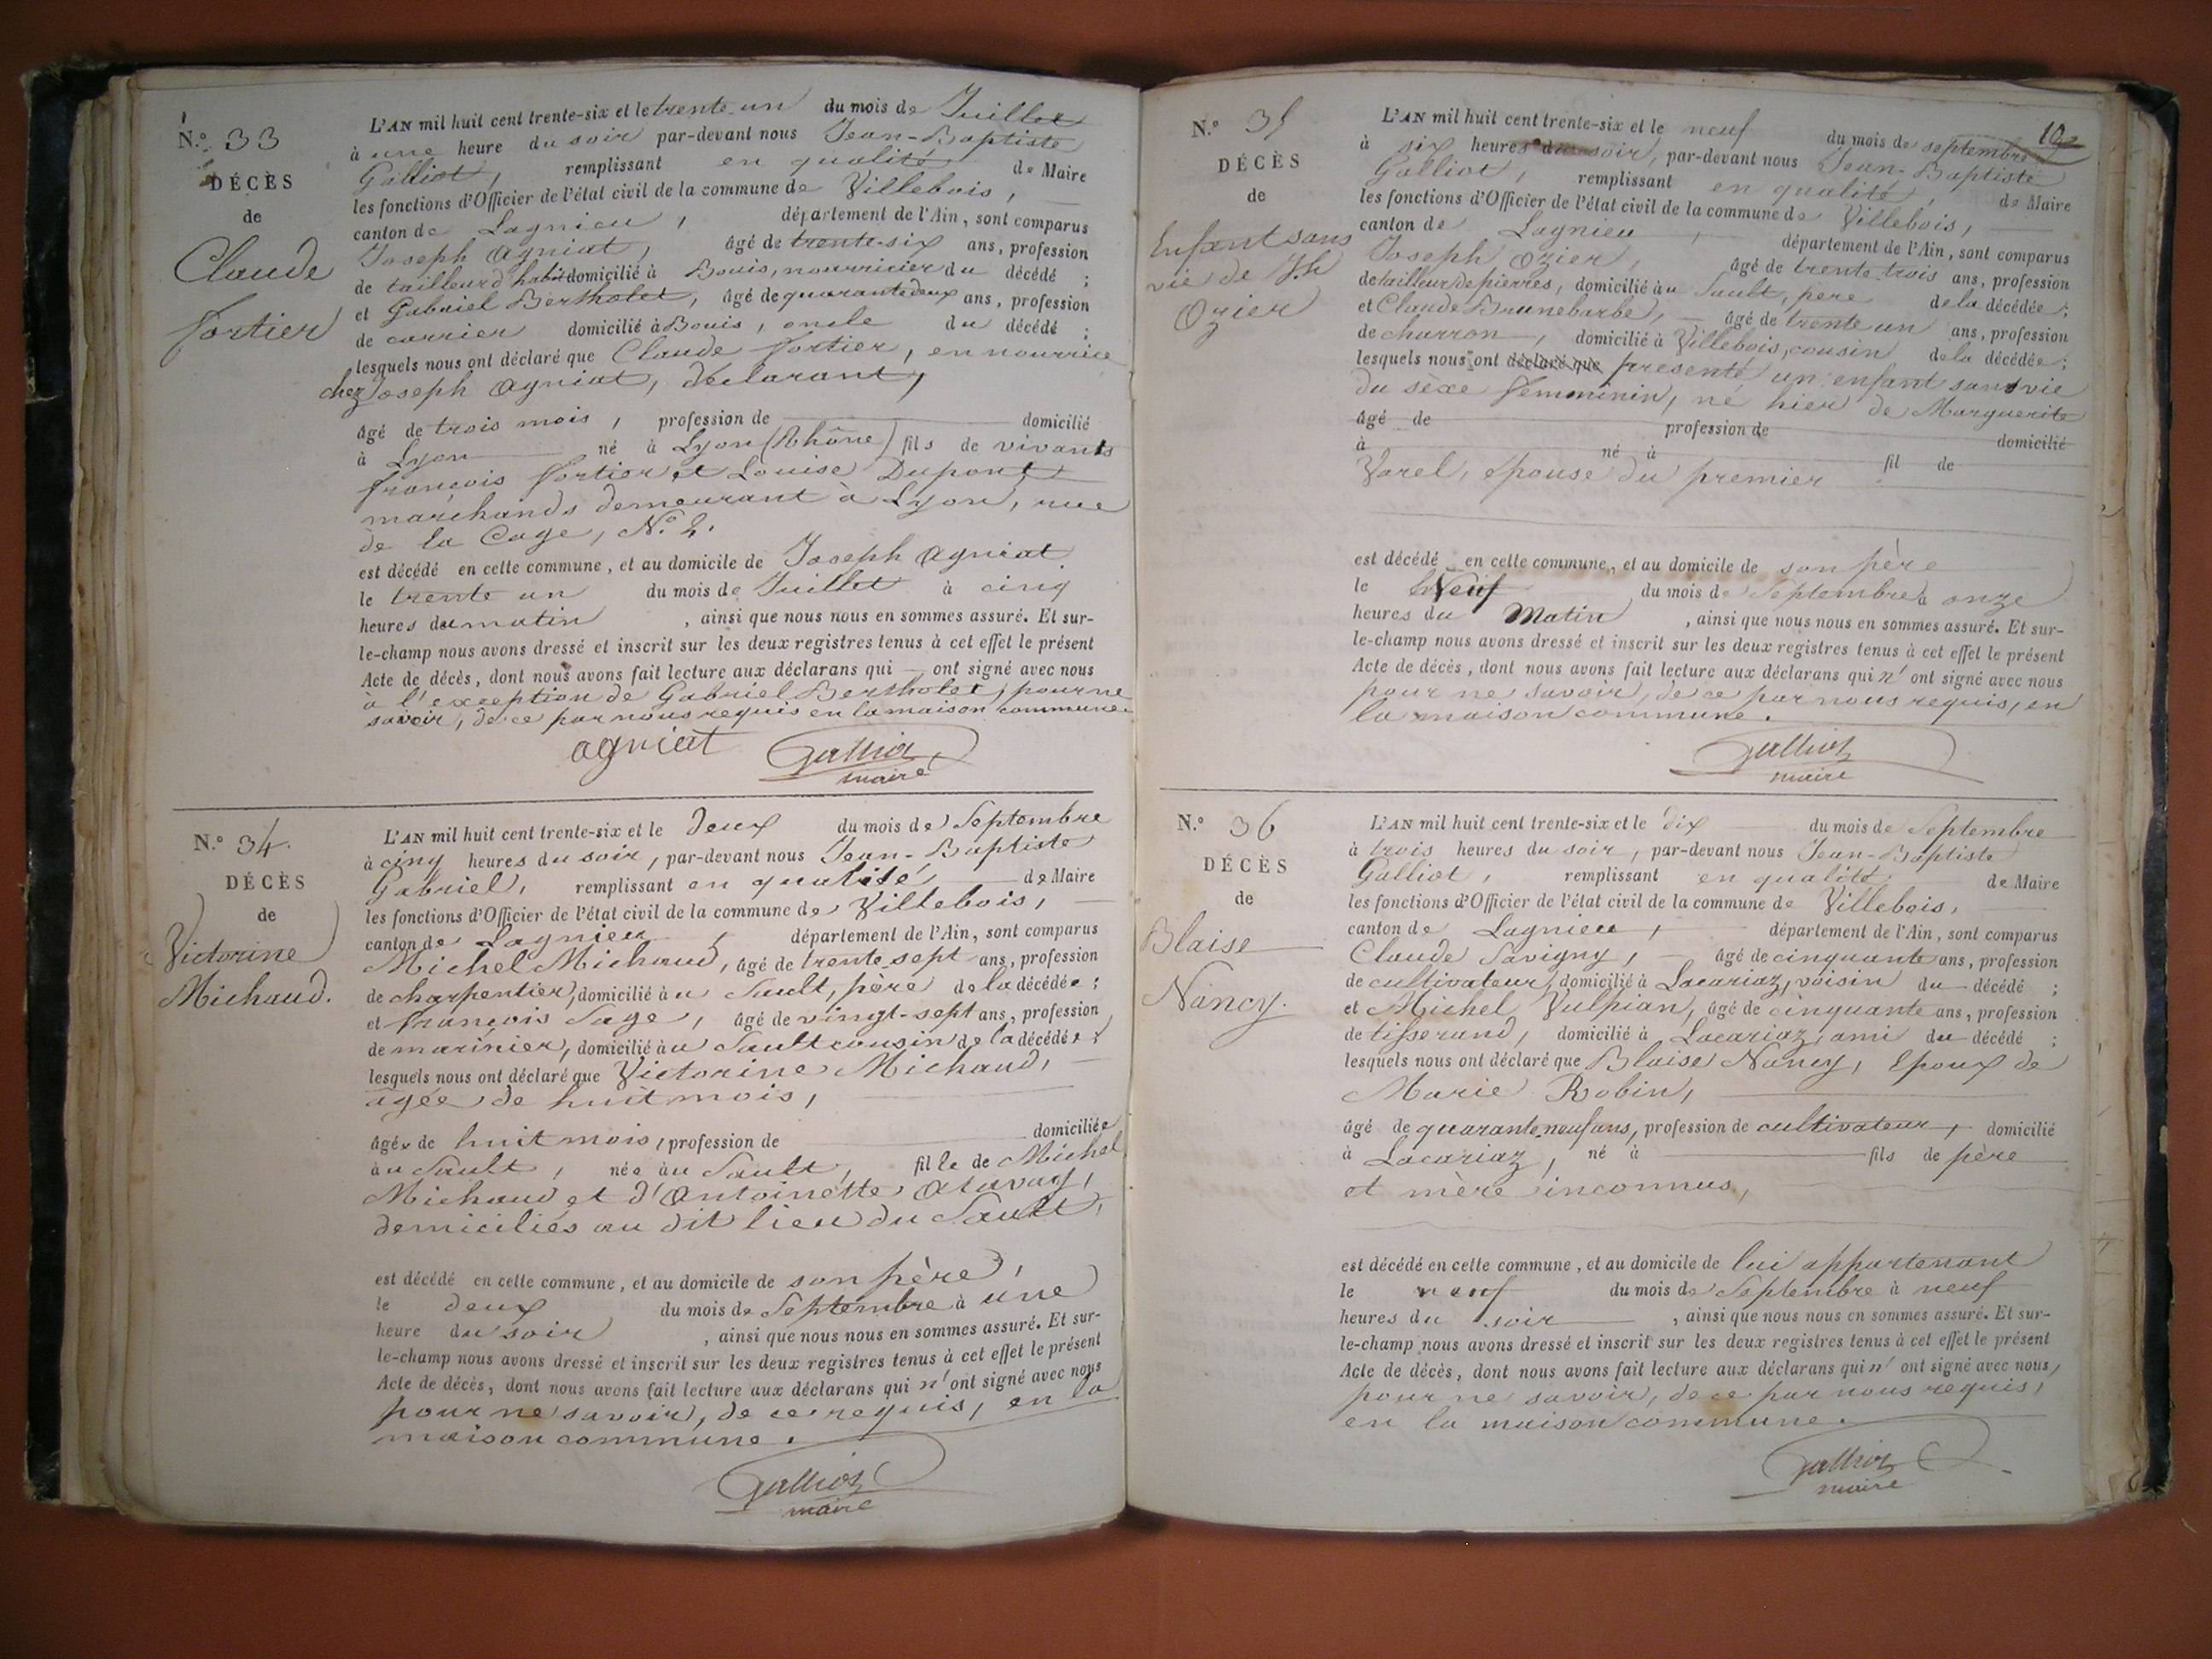 N.º 33
DÉCÈS
de
Claude
Fortier
L'AN mil huit cent trente-six et le trente-un du mois de Juillet
à une heure du soir par-devant nous Jean-Baptiste
Galliot, remplissant en qualité de Maire
les fonctions d'Officier de l'état civil de la commune de Villebois,
canton de Lagnieu, département de l'Ain, sont comparus
Joseph Agniat, âgé de trente-six ans, profession
de tailleur d'habits domicilié à Bouis, nourricier du décédé ;
et Gabriel Bertholet, âgé de quarante deux ans, profession
de carrier domicilié à Bouis, oncle du décédé ;
lesquels nous ont déclaré que Claude Fortier, en nourrice
chez Joseph Agniat, déclarant,
âgé de trois mois, profession de domicilié
à Lyon né à Lyon (Rhône) fils de vivants
françois Fortier et Louise Dupont
marchands demeurant à Lyon, rue
de la Cage, N.º 2.
est décédé en cette commune, et au domicile de Joseph Agniat
le trente un du mois de Juillet à cinq
heures du matin, ainsi que nous nous en sommes assuré. Et sur-
le-champ nous avons dressé et inscrit sur les deux registres tenus à cet effet le présent
Acte de décès, dont nous avons fait lecture aux déclarans qui ont signé avec nous
à l'exception de Gabriel Bertholet, pour ne
savoir, de ce par nous requis en la maison commune.
agniat Galliot
maire
N.º 34.
DÉCÈS
de
Victorine
Michaud.
L'AN mil huit cent trente-six et le deux du mois de Septembre
à cinq heures du soir, par-devant nous Jean-Baptiste
Gabriel, remplissant en qualité de Maire
les fonctions d'Officier de l'état civil de la commune de Villebois,
canton de Lagnieu, département de l'Ain, sont comparus
Michel Michaud, âgé de trente-sept ans, profession
de charpentier, domicilié au Sault, père de la décédée ;
et françois Sage, âgé de vingt-sept ans, profession
de marinier, domicilié au Sault cousin de la décédée ;
lesquels nous ont déclaré que Victorine Michaud,
agée de huit mois,
âgée de huit mois, profession de domiciliée
au Sault, née au Sault, fille de Michel
Michaud et d'Antoinette
demiciliés au dit lieu du Sault,
est décédé en cette commune, et au domicile de son père,
le deux du mois de Septembre à une
heure du soir, ainsi que nous nous en sommes assuré. Et sur-
le-champ nous avons dressé et inscrit sur les deux registres tenus à cet effet le présent
Acte de décès, dont nous avons fait lecture aux déclarans qui n'ont signé avec nous
pour ne savoir, de ce requis, en la
maison commune.
Galliot
maire
N.º 35
DÉCÈS
de
Enfant sans
vie de Jh
Ozier
L'AN mil huit cent trente-six et le neuf du mois de septembre
à six heures du soir, par-devant nous Jean-Baptiste
Galliot, remplissant en qualité, de Maire
les fonctions d'Officier de l'état civil de la commune de Villebois,
canton de Lagnieu, département de l'Ain, sont comparus
Joseph Ozier, âgé de trente-trois ans, profession
de tailleur de pierres, domicilié au Sault, père de la décédée ;
et Claude Brunebarbe, âgé de trente un ans, profession
de charron, domicilié à Villebois, cousin de la décédée ;
lesquels nous ont déclaré que presenté un enfant sans vie
du sèxe femminin, né hier de Marguerite
âgé de profession de domicilié
à né à fil de
Varel, épouse du premier
est décédé en cette commune, et au domicile de son père
le Neuf du mois de Septembre à onze
heures du Matin, ainsi que nous nous en sommes assuré. Et sur-
le-champ nous avons dressé et inscrit sur les deux registres tenus à cet effet le présent
Acte de décès, dont nous avons fait lecture aux déclarans qui n'ont signé avec nous
pour ne savoir, de ce par nous requis, en
la maison commune.
Galliot
maire
N.º 36
DÉCÈS
de
Blaise
Nancy.
L'AN mil huit cent trente-six et le dix du mois de Septembre
à trois heures du soir, par-devant nous Jean-Baptiste
Galliot, remplissant en qualité de Maire
les fonctions d'Officier de l'état civil de la commune de Villebois,
canton de Lagnieu, département de l'Ain, sont comparus
Claude Savigny, âgé de cinquante ans, profession
de cultivateur, domicilié à Lacariaz, voisin du décédé ;
et Michel Vulpian, âgé de cinquante ans, profession
de tisserand, domicilié à Lacariaz, ami du décédé ;
lesquels nous ont déclaré que Blaise Nancy, Epoux de
Marie Robin,
âgé de quarante-neuf ans, profession de cultivateur, domicilié
à Lacariaz, né à fils de père
et mère inconnus,
est décédé en cette commune, et au domicile de lui appartenant
le neuf du mois de Septembre à neuf
heures du soir, ainsi que nous nous en sommes assuré. Et sur-
le-champ nous avons dressé et inscrit sur les deux registres tenus à cet effet le présent
Acte de décès, dont nous avons fait lecture aux déclarans qui n'ont signé avec nous,
pour ne savoir, de ce par nous requis,
en la maison commune.
Galliot
maire